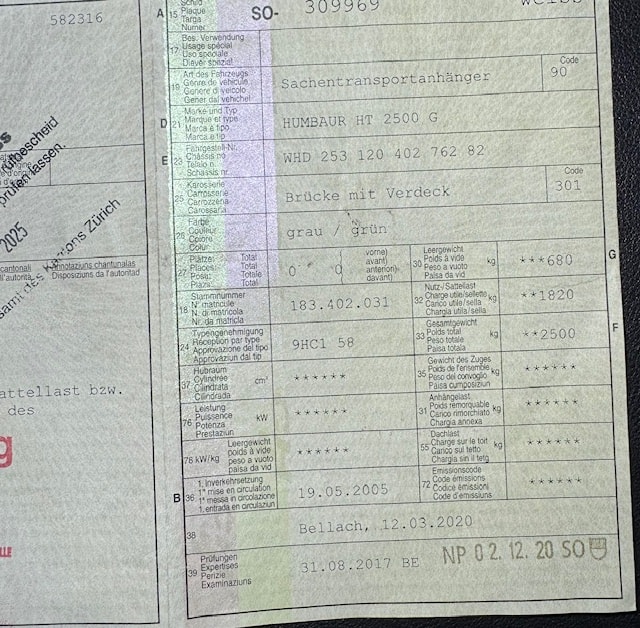 582316
prüfen lassen.
2025
Kantons Zürich
cantonali
Annotaziuns chantunalas
Disposiziuns da l'autoritad
attellast bzw.
des
A 15
Plaque
Targa
Numer
SO- 309969
17
Bes. Verwendung
Usage spécial
Uso speciale
Diever spezial
19
Art des Fahrzeugs
Genre de véhicule
Genere di veicolo
Gener dal vehichel
Sachentransportanhänger
Code
90
D 21
Marke und Typ
Marque et type
Marca e tipo
Marca e tip
HUMBAUR HT 2500 G
E 23
Fahrgestell-Nr.
Châssis no
Telaio n.
Schassis nr.
WHD 253 120 402 762 82
25
Karosserie
Carrosserie
Carrozzeria
Carossaria
Brücke mit Verdeck
Code
301
26
Farbe
Couleur
Colore
Colur
grau / grün
27
Plätze: Total
Places: Total
Posti: Totale
Plazs: Total
0 (
vorne)
avant)
anteriori)
davant)
30
Leergewicht
Poids à vide
Peso a vuoto
Paisa da vid
kg
***680
G
18
Stammnummer
N° matricule
N. di matricola
Nr. da matricla
183.402.031
32
Nutz-/Sattellast
Charge utile/sellette
Carico utile/sella
Chargia utila/sella
kg
**1820
24
Typengenehmigung
Réception par type
Approvazione del tipo
Approvaziun dal tip
9HC1 58
33
Gesamtgewicht
Poids total
Peso totale
Paisa totala
kg
**2500
F
37
Hubraum
Cylindrée
Cilindrata
Cilindrada
cm³
******
35
Gewicht des Zuges
Poids de l'ensemble
Peso del convoglio
Paisa cumposiziun
kg
******
76
Leistung
Puissance
Potenza
Prestaziun
kW
******
31
Anhängelast
Poids remorquable
Carico rimorchiato
Chargia annexa
kg
******
78 kW/kg
Leergewicht
poids à vide
peso a vuoto
paisa da vid
******
55
Dachlast
Charge sur le toit
Carico sul tetto
Chargia sin il tetg
kg
******
B 36
1. Inverkehrsetzung
1re mise en circulation
1a messa in circolazione
1. entrada en circulaziun
19.05.2005
72
Emissionscode
Code émissions
Codice emissioni
Code d'emissiuns
******
38
Bellach, 12.03.2020
39
Prüfungen
Expertises
Perizie
Examinaziuns
31.08.2017 BE
NP 02.12.20 SO